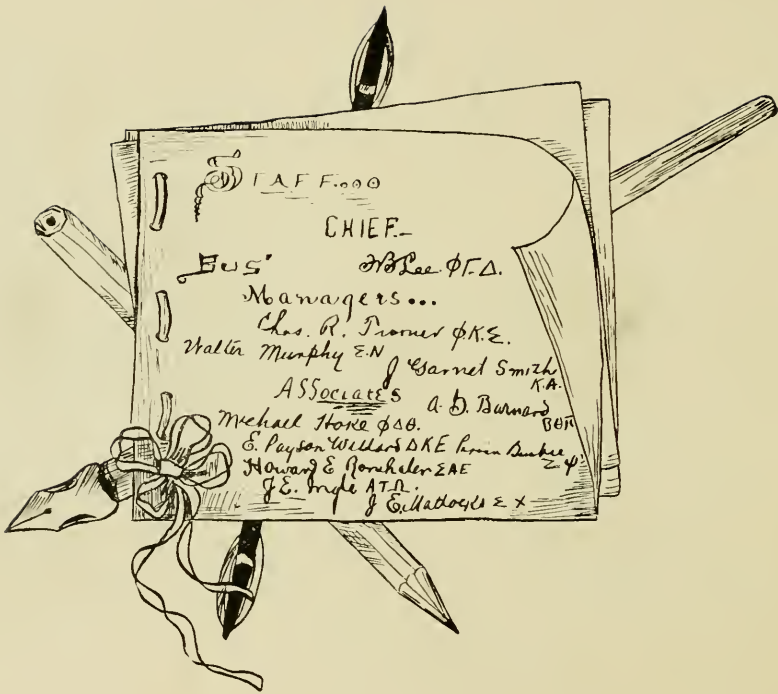 STAFF...
CHIEF.
WB Lee Φ.Γ.Δ.
Bus'
Managers...
Chas. R. Turner Φ.K.Σ.
Walter Murphy Σ.N
J Garnet Smith
K.A.
ASSociates
A. D. Barnard
BΘΠ
Michael Hoke ΦΔΘ.
E. Payson Willard ΔKE Perrin Busbee
Σ Ψ
Howard E Rondthaler ΣAE
J. E. Ingle ATΩ.
J E. Mattocks Σ X